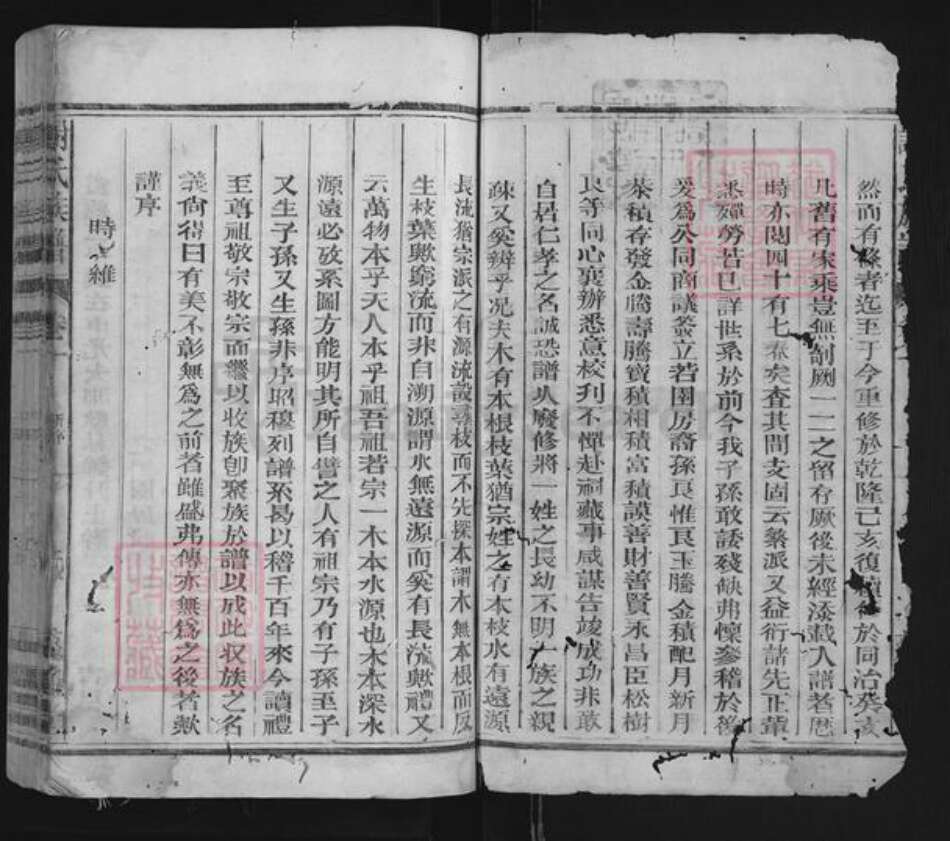 然而有修者迄至于今重修於乾隆己亥復續修於同治癸亥
凡舊有家乘豈無剞劂一一之留存厥後未經添載入譜者歷
時亦閱四十有七秊矣查其間支固云繁派又益衍諸先正輩
悉殫勞苦已詳世系於前今我子孫敢諉殘缺弗懍參稽於後
爰為公同商議簽立若圉房裔孫艮惟艮玉騰金積配月新月
恭積存發金騰壽騰寶積相積富積謨善財善賢永昌臣松樹
艮等同心襄辦悉意校刋不憚赴祠蕆事咸謀告竣成功非敢
自居仁孝之名誠恐譜久廢修將一姓之長幼不明一族之親
疎又奚辨乎况夫木有本根枝葉猶宗姓之有本枝水有遠源
長流猶宗派之有源流設尋枝而不先探本謂木無本根而反
生枝葉歟窮流而非自溯源謂水無遠源而奚有長流歟禮又
云萬物本乎天人本乎祖吾祖若宗一木本水源也木本深水
源遠必攷系圖方能明其所自譬之人有祖宗乃有子孫至子
又生子孫又生孫非序昭穆列譜系曷以稽千百年來今讀禮
至尊祖敬宗敬宗而繼以收族卽聚族於譜以成此収族之名
義倘得曰有美不彰無為之前者雖盛弗傳亦無為之後者歟
謹序
時維